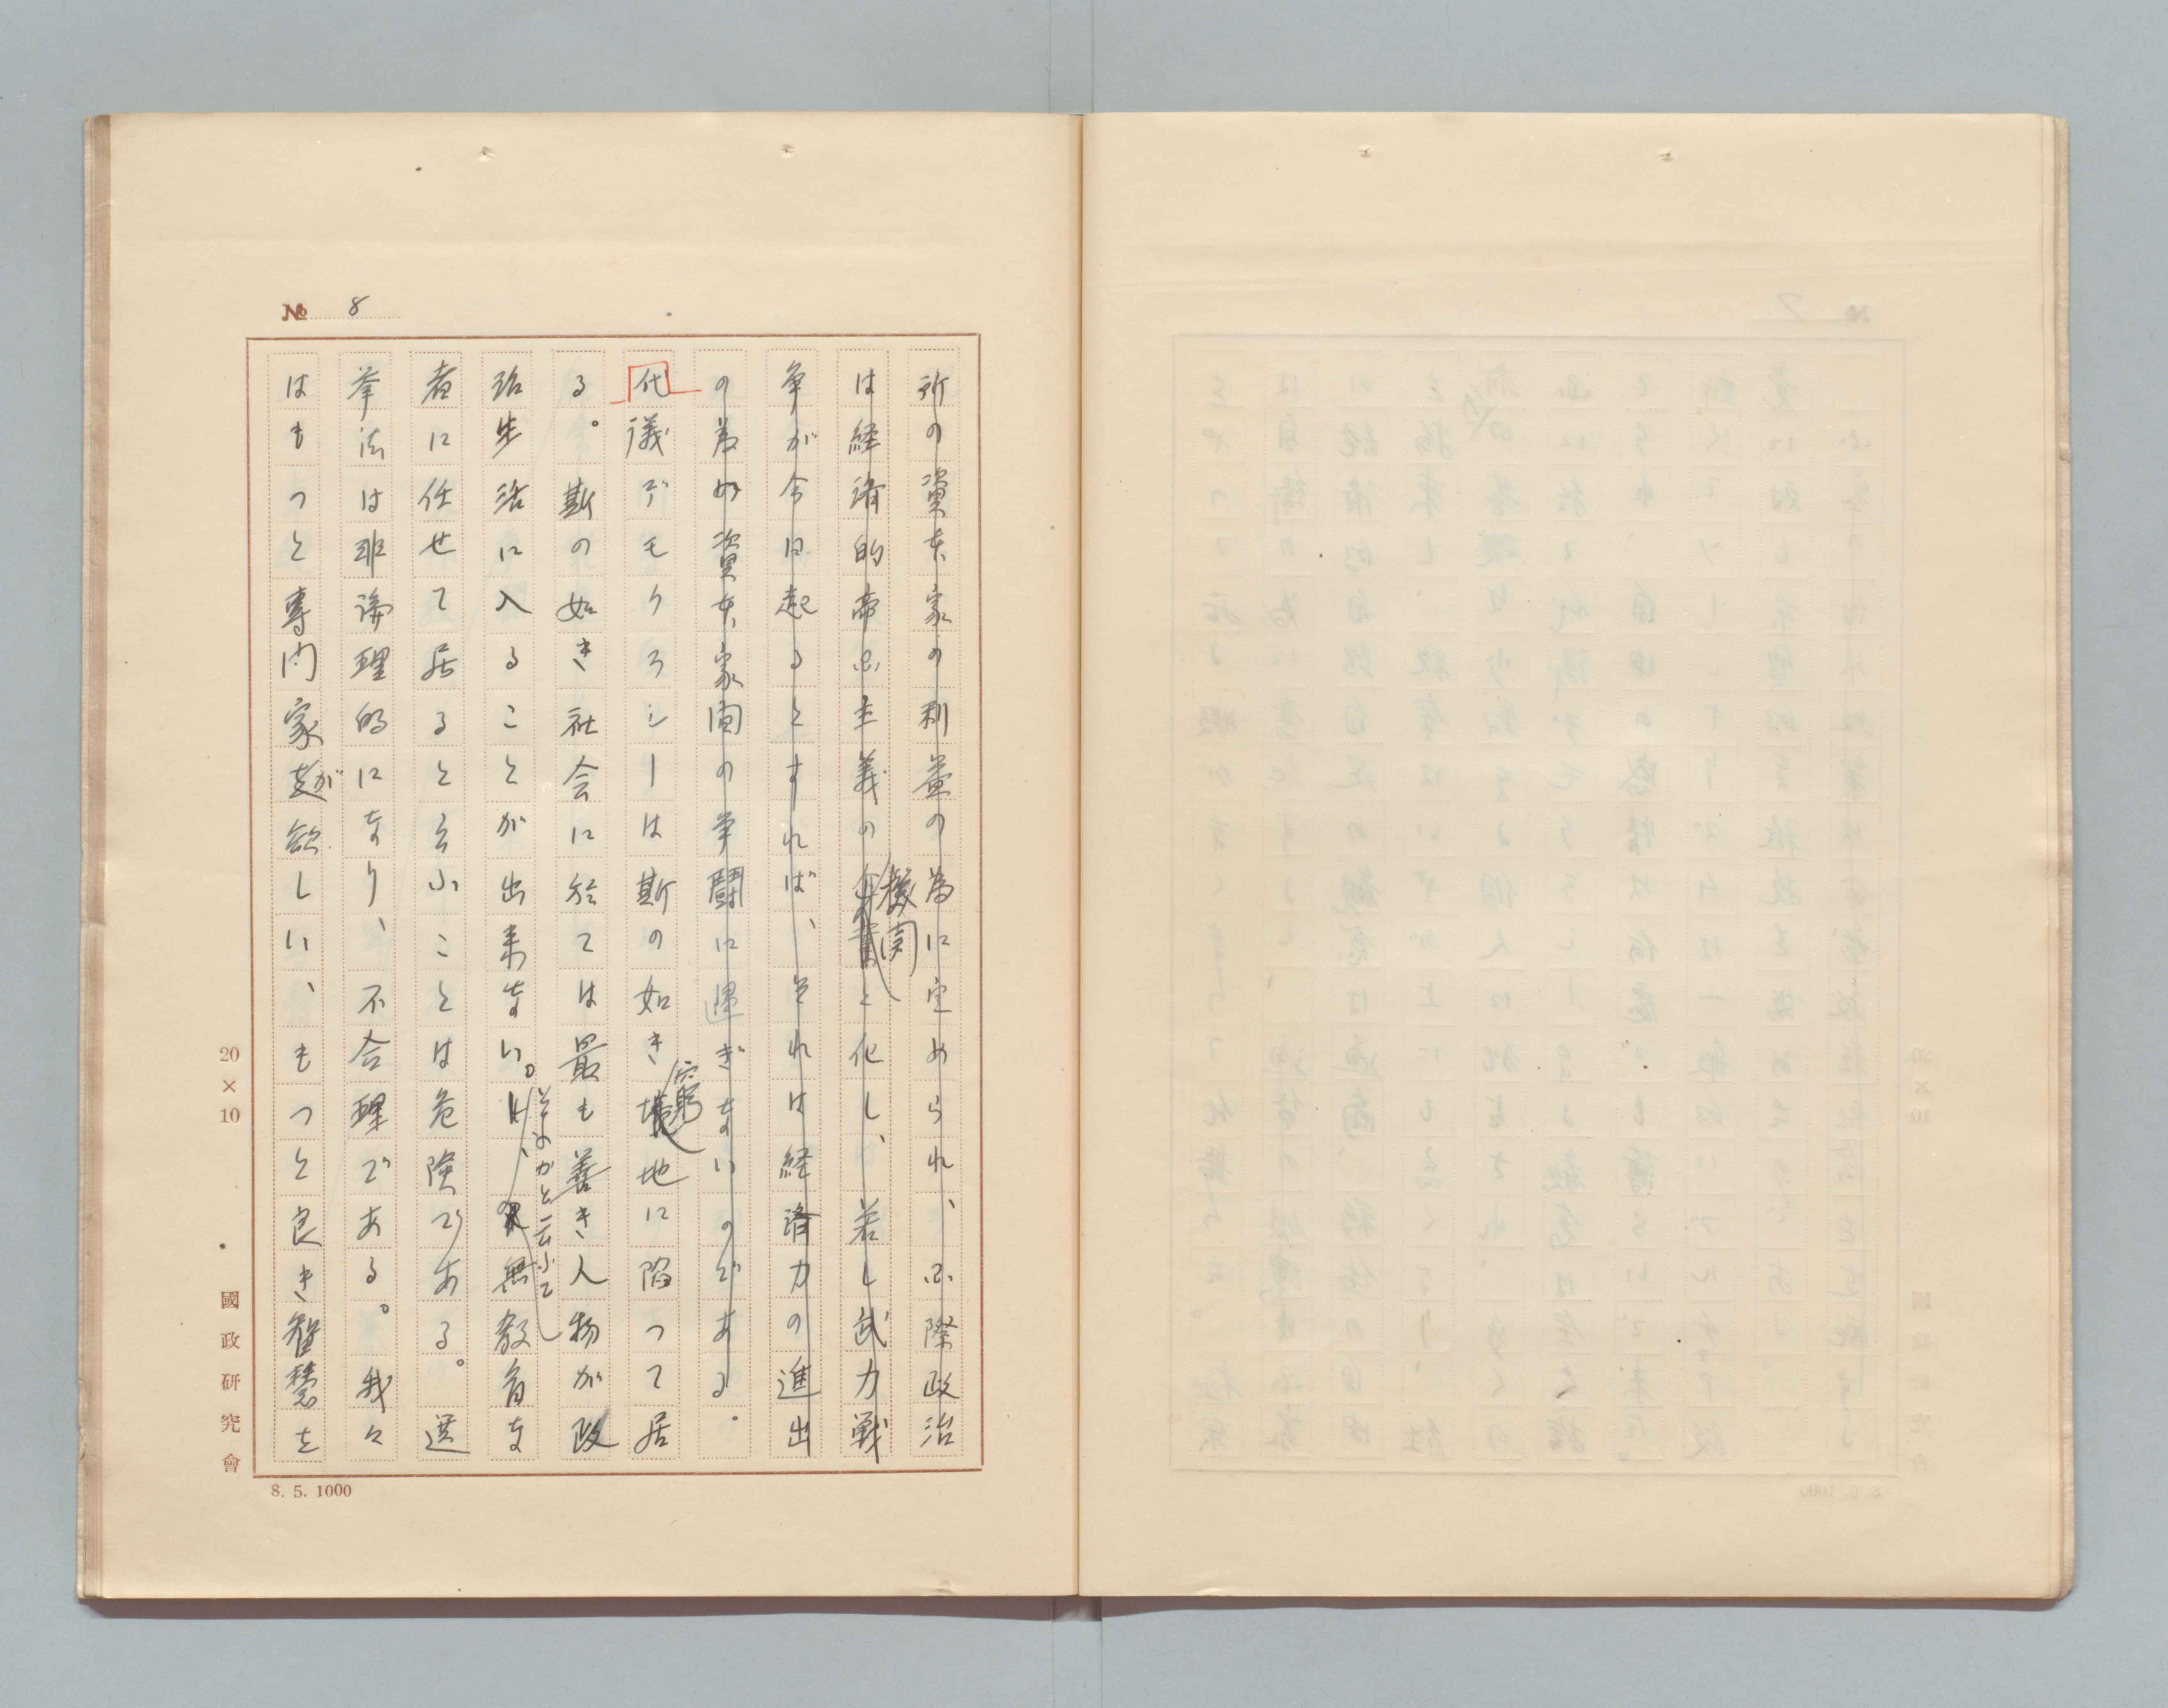 № 8
所の資本家の利益の為に定められ、国際政治
は経済的帝国主義の機関と化し、若し武力戦
争が今日起るとすれば、それは経済力の進出
の為め資本家間の争闘に過ぎないのである。
代議デモクラシーは斯の如き窮地に陥つて居
る。斯の如き社会に於ては最も善き人物が政
治生活に入ることが出来ない。
そのかと云ふて
無教育な
者に任せて居ると云ふことは危険である。選
挙法は非論理的になり、不合理である。我々
はもつと専門家が欲しい、もつと良き智慧を
20×10
國政研究會
8. 5. 1000